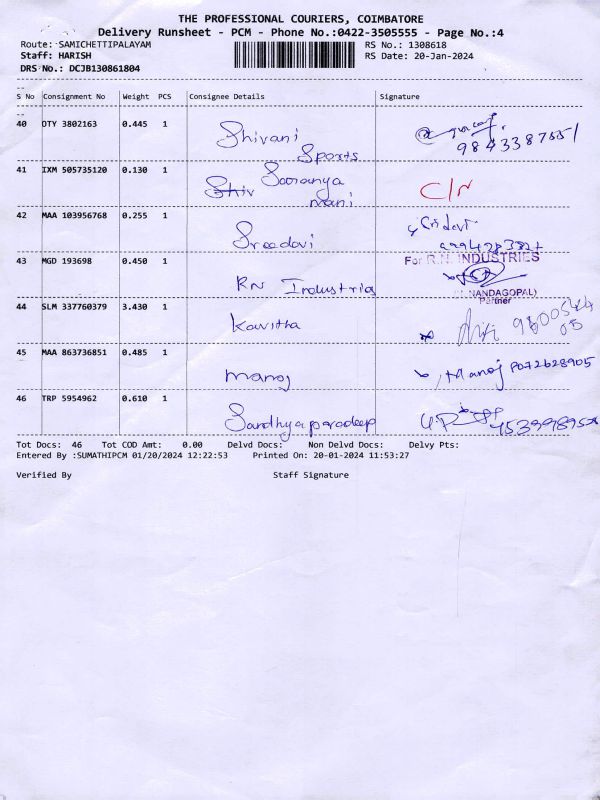 THE PROFESSIONAL COURIERS, COIMBATORE
Delivery Runsheet - PCM - Phone No.:0422-3505555 - Page No.:4
Route: SAMICHETTIPALAYAM RS No.: 1308618
Staff: HARISH RS Date: 20-Jan-2024
DRS No.: DCJB130861804
S No Consignment No Weight PCS Consignee Details Signature
40 OTY 3802163 0.445 1 Shivani
Sports
9843387551
41 IXM 505735120 0.130 1 Saranya C/N
Shiv mani
42 MAA 103956768 0.255 1 Sreedevi Sridevi
43 MGD 193698 0.450 1 RN Industries
For R.N. INDUSTRIES
NANDAGOPAL)
Partner
44 SLM 337760379 3.430 1 Kavitha
45 MAA 863736851 0.485 1 manoj Manoj 8072628905
46 TRP 5954962 0.610 1 Sandhyaparadeep
Tot Docs: 46 Tot COD Amt: 0.00 Delvd Docs: Non Delvd Docs: Delvy Pts:
Entered By :SUMATHIPCM 01/20/2024 12:22:53 Printed On: 20-01-2024 11:53:27
Verified By Staff Signature